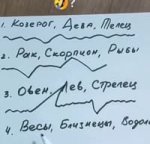 1. Козерог, Дева, Телец
2. Рак, Скорпион, Рыбы
3. Овен, Лев, Стрелец
4. Весы, Близнецы, Водол